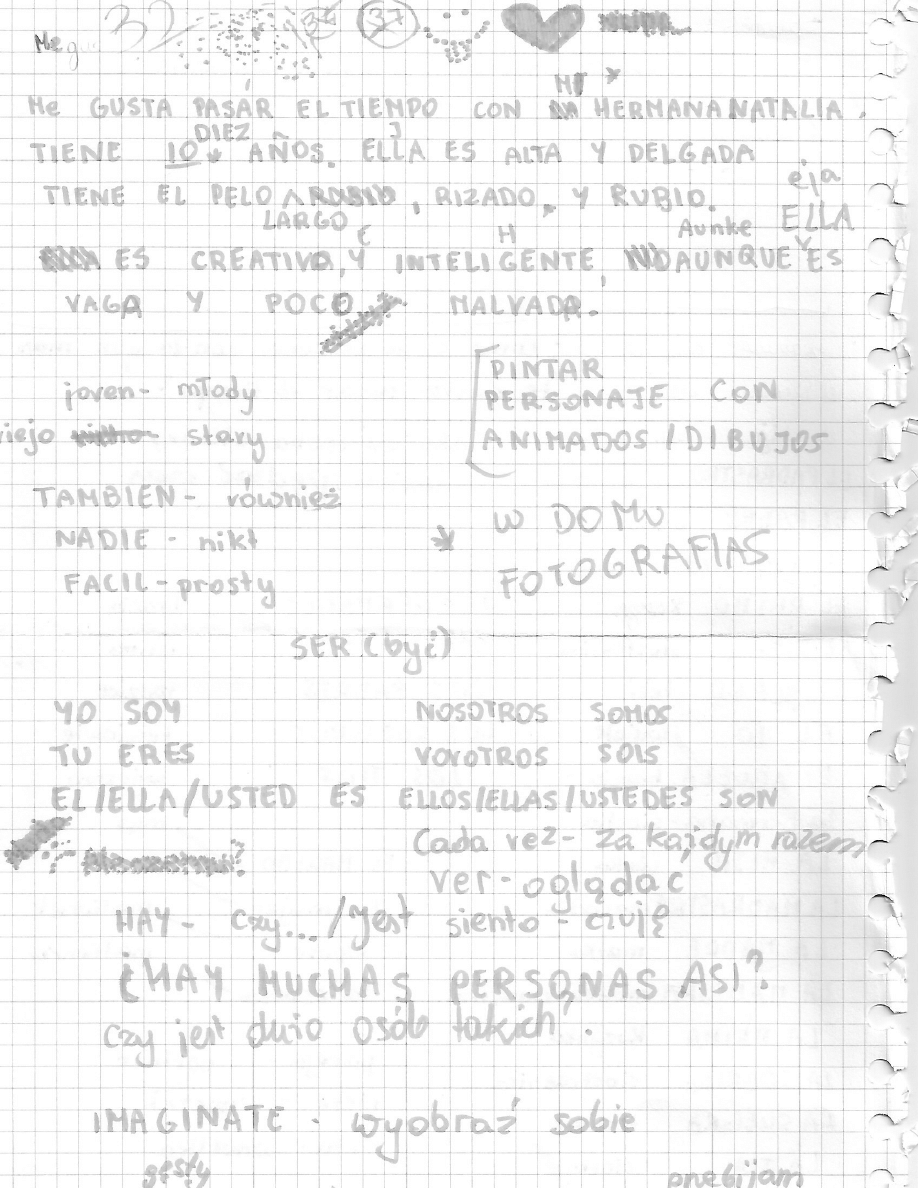 Me gu 32 32 37
MI
Me GUSTA PASÁR EL TIEMPO CON HERMANA NATALIA.
DIEZ
TIENE 10 AÑOS. ELLA ES ALTA Y DELGADA
TIENE EL PELO , RIZADO, Y RUBIO. eja
LARGO Aunke ELLA
ES CREATIVA, Y INTELIGENTE, AUNQUE ES
VAGA Y POCO MALVADA.
joven - młody
viejo stary
PINTAR
PERSONAJE CON
ANIMADOS / DIBUJOS
TAMBIEN - również
NADIE - nikt
FACIL - prosty
W DOMU
FOTOGRAFIAS
SER (być)
YO SOY NOSOTROS SOMOS
TU ERES VOVOTROS SOIS
EL/ELLA/USTED ES ELLOS/ELLAS/USTEDES SON
Cada vez - za kajdym razem
ver - oglądac
HAY - czy.../jest siento - czuję
¿HAY MUCHAS PERSONAS ASI?
czy jest dużo osób takich.
IMAGINATE - wyobraź sobie
gęsty